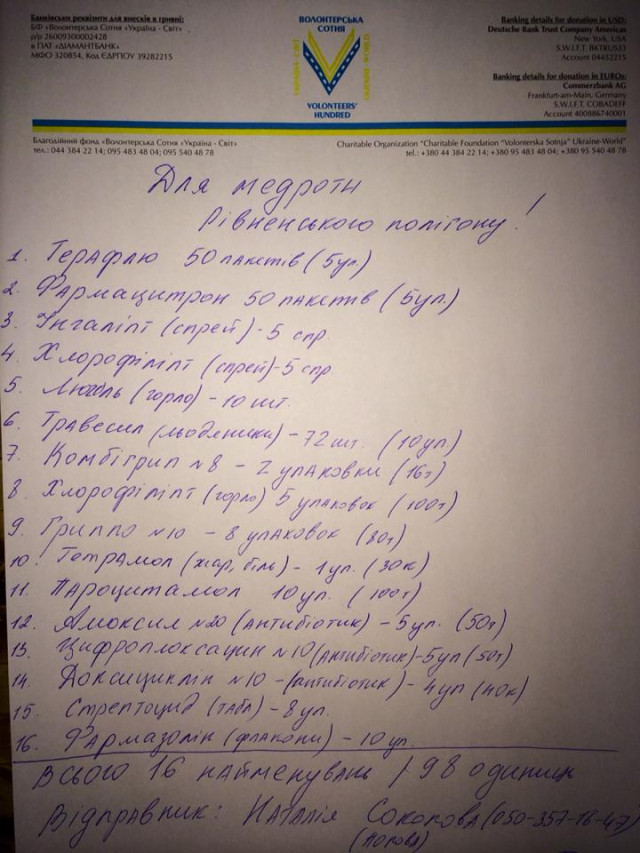 Банківські реквізити для внесків в гривні:
БФ «Волонтерська Сотня «Україна - Світ»
р/р 26009300002428
в ПАТ «ДІАМАНТБАНК»
МФО 320854, Код ЄДРПОУ 39282215
ВОЛОНТЕРСЬКА
СОТНЯ
VOLONTEERS'
HUNDRED
Banking details for donation in USD:
Deutsche Bank Trust Company Americas
New York, USA
S.W.I.F.T. BKTRUS33
Account 04452215
Banking details for donation in EUROs:
Commerzbank AG
Frankfurt-am-Main, Germany
S.W.I.F.T. COBADEFF
Account 400886740001
Благодійний фонд «Волонтерська Сотня «Україна - Світ»
тел.: 044 384 22 14; 095 483 48 04; 095 540 48 78
Charitable Organization "Charitable Foundation "Volonterska Sotnja" Ukraine-World"
tel.: +380 44 384 22 14; +380 95 483 48 04; +380 95 540 48 78
Для медроти
Рівненського полігону!
1. Терафлю 50 пакетів (5уп)
2. Фармацитрон 50 пакетів (5уп.)
3. Інгаліпт (спрей) - 5 спр.
4. Хлорофіліпт (спрей) - 5 спр
5. Люголь (горло) - 10 шт.
6. Травесил (льодяники) - 72 шт. (10уп)
7. Комбігрип №8 - 2 упаковки (16т)
8. Хлорофіліпт (горло) 5 упаковок (100т)
9. Гриппо №10 - 8 упаковок (80т)
10. Тетрамол (жар, біль) - 1уп. (30к)
11. Пароцитамол 10уп. (100т)
12. Амоксил №20 (антибіотик) - 5уп. (50т)
13. Цифроплоксацин №10 (антибіотик) - 5уп (50т)
14. Доксициклін №10 - (антибіотик) - 4уп (40к)
15. Стрептоцид (табл) - 8уп.
16. Фармазолін (флакони) - 10 уп.
Всього 16 найменувань / 98 одиниц
Відправник: Наталія Соколова (050-357-16-47)
(Попова)